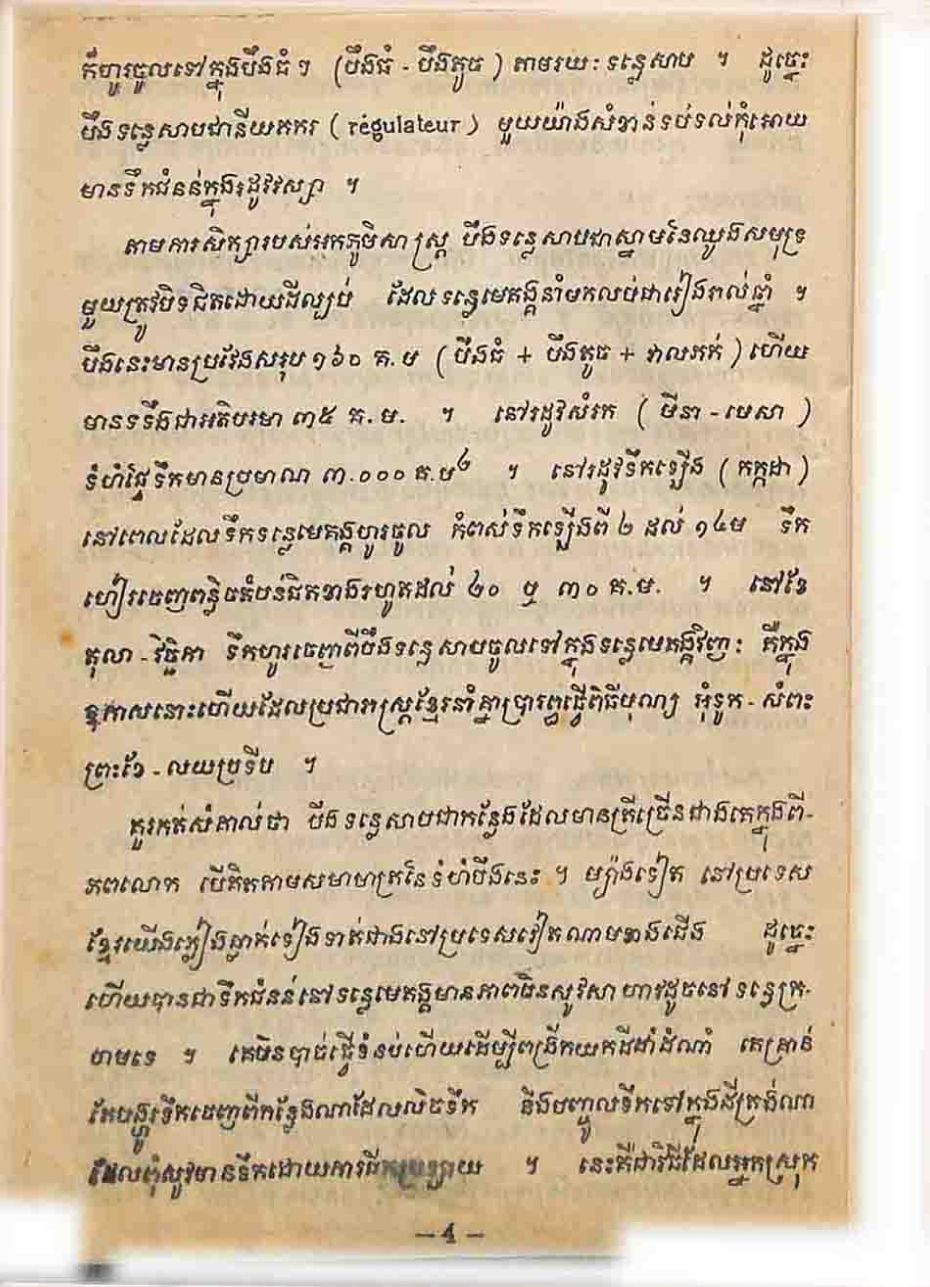 ក៏ហូរចូលទៅក្នុងបឹងធំៗ (បឹងធំ - បឹងតូច ) តាមរយៈទន្លេសាប ។ ដូច្នេះ
បឹងទន្លេសាបជានីយតករ ( régulateur ) មួយយ៉ាងសំខាន់ទប់ទល់កុំអោយ
មានទឹកជំនន់ក្នុងរដូវវស្សា ។
តាមការសិក្សារបស់អ្នកភូមិសាស្ត្រ បឹងទន្លេសាបជាស្នាមនៃឈូងសមុទ្រ
មួយត្រូវបិទជិតដោយដីល្បប់ ដែលទន្លេមេគង្គនាំមកលប់ជារៀងរាល់ឆ្នាំ ។
បឹងនេះមានប្រវែងសរុប ១៦០ គ.ម ( បឹងធំ + បឹងតូច + វាលភក់ ) ហើយ
មានទទឹងជាអតិបរមា ៣៥ គ.ម. ។ នៅរដូវសំរក ( មីនា - មេសា )
ទំហំផ្ទៃទឹកមានប្រមាណ ៣.០០០ គ.ម២ ។ នៅរដូវទឹកឡើង ( កក្កដា )
នៅពេលដែលទឹកទន្លេមេគង្គហូរចូល កំពស់ទឹកឡើងពី ២ ដល់ ១៤ម ទឹក
ហៀរចេញពន្លិចតំបន់ជិតខាងរហូតដល់ ២០ ឬ ៣០ គ.ម. ។ នៅខែ
តុលា - វិច្ឆិកា ទឹកហូរចេញពីបឹងទន្លេសាបចូលទៅក្នុងទន្លេមេគង្គវិញ: គឺក្នុង
ឱកាសនោះហើយដែលប្រជារាស្ត្រខ្មែរនាំគ្នាប្រារព្ធធ្វើពិធីបុណ្យ អុំទូក - សំពះ
ព្រះខែ - លយប្រទីប ។
គួរកត់សំគាល់ថា បឹងទន្លេសាបជាកន្លែងដែលមានត្រីច្រើនជាងគេក្នុងពី-
ភពលោក បើគិតតាមសមាមាត្រនៃទំហំបឹងនេះ ។ ម្យ៉ាងទៀត នៅប្រទេស
ខ្មែរយើងភ្លៀងធ្លាក់ទៀងទាត់ជាងនៅប្រទេសវៀតណាមខាងជើង ដូច្នេះ
ហើយបានជាទឹកជំនន់នៅទន្លេមេគង្គមានភាពមិនសូវសាហាវដូចនៅ ទន្លេក្រ-
ហាមទេ ។ គេមិនបាច់ធ្វើទំនប់ហើយដើម្បីពង្រីកយកដីដាំដំណាំ គេគ្រាន់
តែបង្ហូរទឹកចេញពីកន្លែងណាដែលលិចទឹក និងបញ្ចូលទឹកទៅក្នុងដីត្រង់ណា
ដែលពុំសូវមានទឹកដោយការជីកប្រឡាយ ។ នេះគឺជាវិធីដែលអ្នកស្រុក
— 4 —